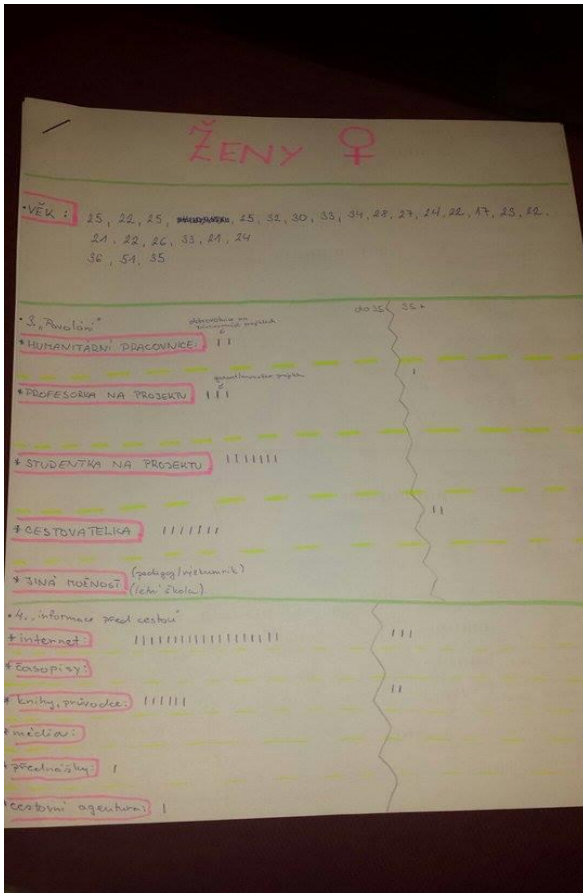 ŽENY ♀
• VĚK: 25, 22, 25, 25, 32, 30, 33, 34, 28, 27, 24, 22, 17, 23, 22,
21, 22, 26, 33, 21, 24
36, 51, 35
do 35 36+
• 3. „Povolání"
* HUMANITÁRNÍ PRACOVNICE: II
I
* PROFESORKA NA PROJEKTU III
* STUDENTKA NA PROJEKTU IIIIIII
II
* CESTOVATELKA: IIIIIII
* JINÁ MOŽNOST (pedagog/výzkumník)
(letní škola)
• 4. „informace před cestou"
* internet: III
* časopisy:
* knihy, průvodce: IIIIII II
* média:
* přednášky: I
* cestovní agentura: I